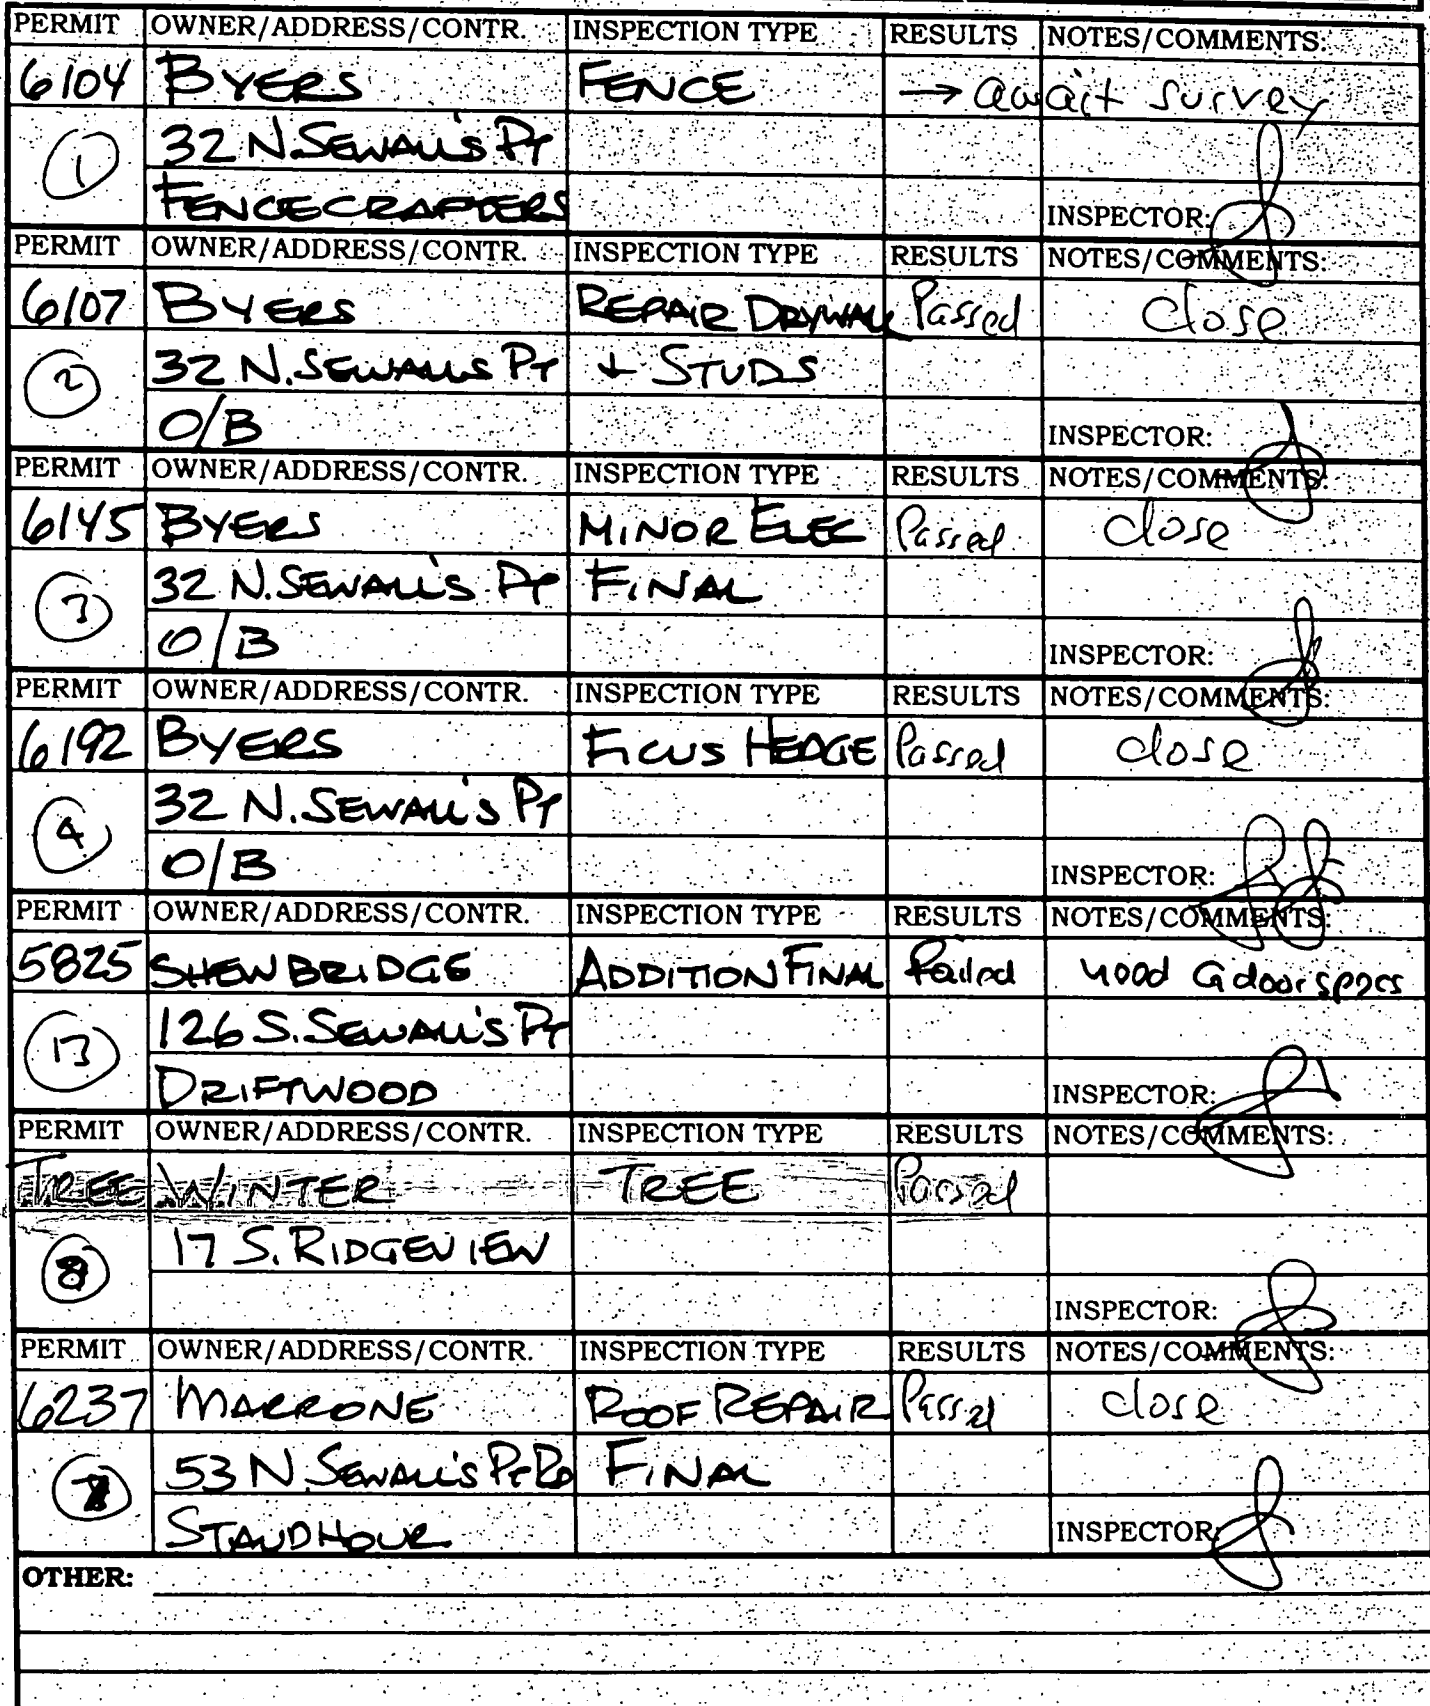 PERMIT OWNER/ADDRESS/CONTR. INSPECTION TYPE RESULTS NOTES/COMMENTS:
6104 BYERS FENCE → await survey
1 32 N. SEWALL'S PT
FENCECRAFTERS INSPECTOR:
PERMIT OWNER/ADDRESS/CONTR. INSPECTION TYPE RESULTS NOTES/COMMENTS:
6107 BYERS REPAIR DRYWALL Passed close
2 32 N. SEWALLS PT + STUDS
O/B INSPECTOR:
PERMIT OWNER/ADDRESS/CONTR. INSPECTION TYPE RESULTS NOTES/COMMENTS:
6145 BYERS MINOR ELEC Passed close
3 32 N. SEWALL'S PT FINAL
O/B INSPECTOR:
PERMIT OWNER/ADDRESS/CONTR. INSPECTION TYPE RESULTS NOTES/COMMENTS:
6192 BYERS FICUS HEDGE Passed close
4 32 N. SEWALL'S PT
O/B INSPECTOR:
PERMIT OWNER/ADDRESS/CONTR. INSPECTION TYPE RESULTS NOTES/COMMENTS:
5825 SHEWBRIDGE ADDITION FINAL Failed need G door specs
13 126 S. SEWALL'S PT
DRIFTWOOD INSPECTOR:
PERMIT OWNER/ADDRESS/CONTR. INSPECTION TYPE RESULTS NOTES/COMMENTS:
TREE WINTER TREE Passed
8 17 S. RIDGEVIEW
INSPECTOR:
PERMIT OWNER/ADDRESS/CONTR. INSPECTION TYPE RESULTS NOTES/COMMENTS:
6237 MARRONE ROOF REPAIR Passed close
53 N. SEWALL'S PT RD FINAL
STANDHOUR INSPECTOR:
OTHER: